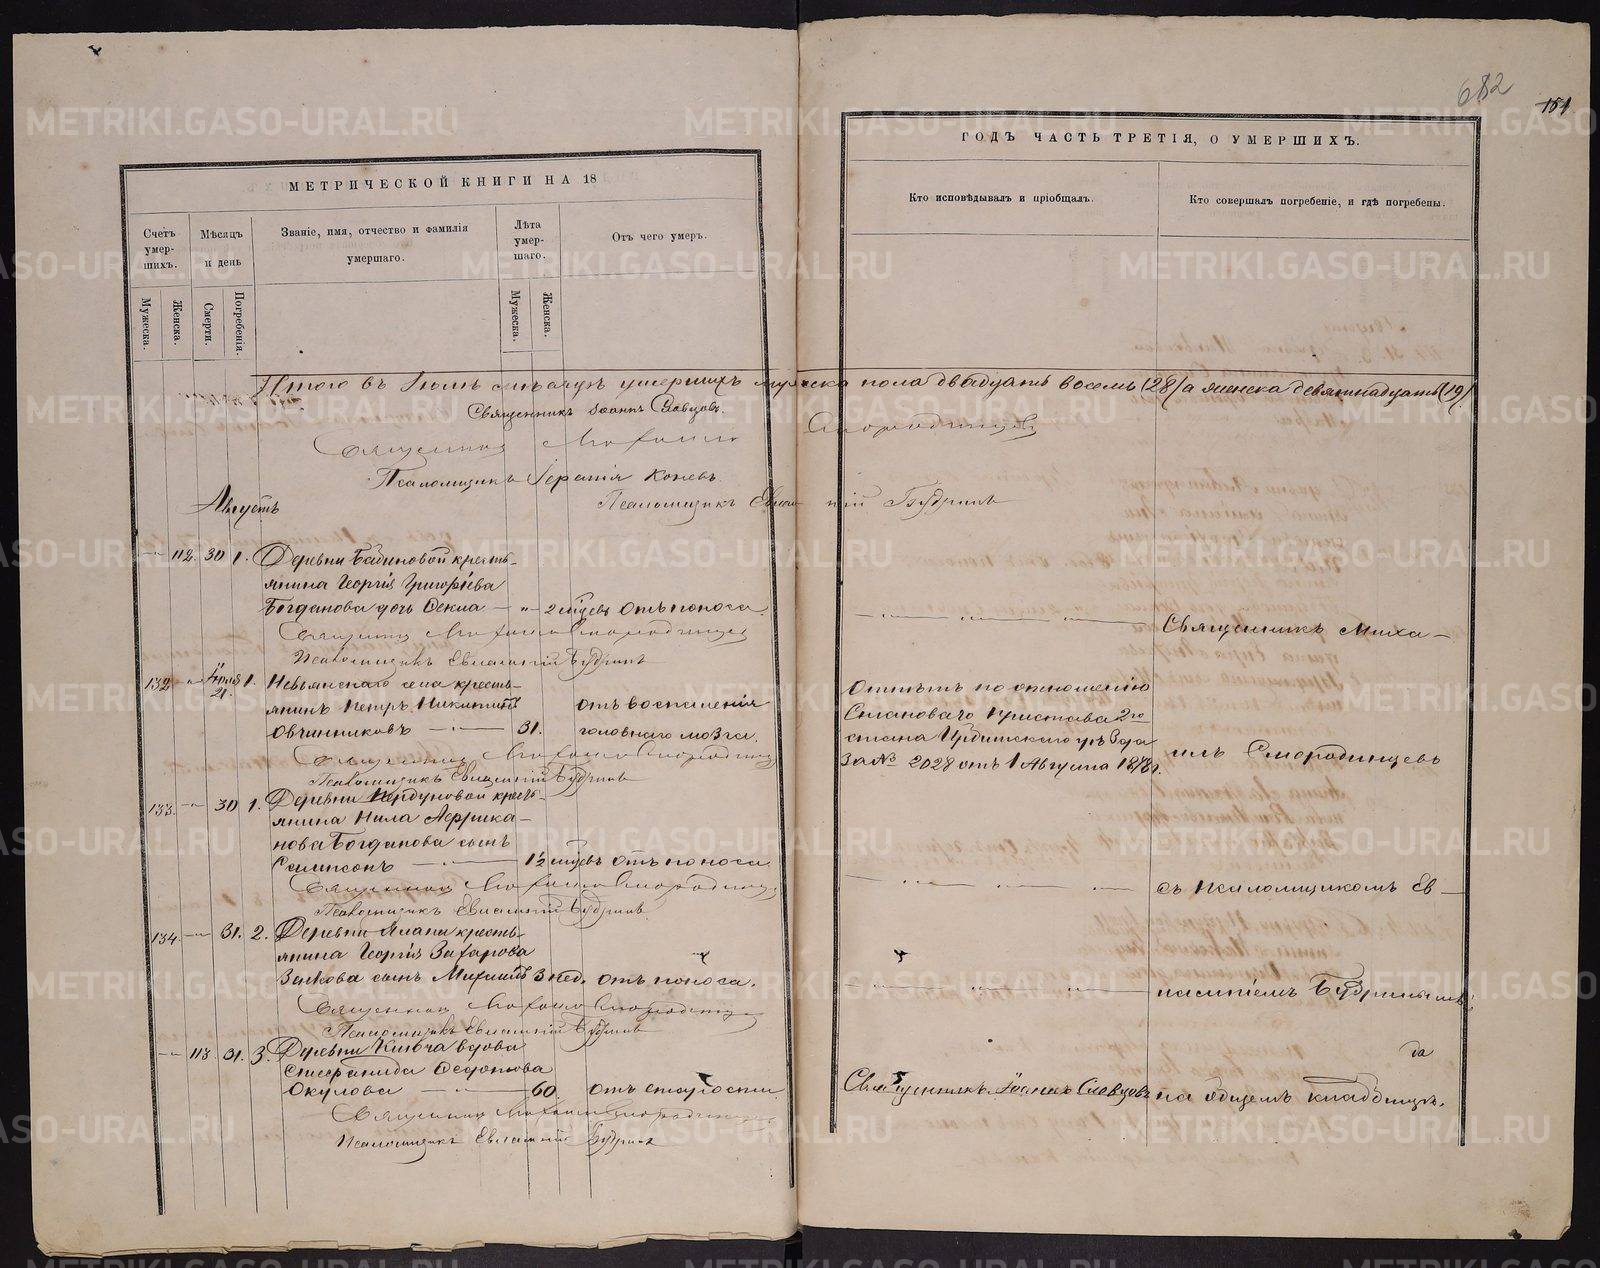 682
151
МЕТРИЧЕСКОЙ КНИГИ НА 18
ГОДЪ ЧАСТЬ ТРЕТІЯ, О УМЕРШИХЪ.
Счетъ умер-шихъ.
Мужеска.
Женска.
Мѣсяцъ и день
Смерти.
Погребенія.
Званіе, имя, отчество и фамилія умершаго.
Лѣта умер-шаго.
Мужеска.
Женска.
Отъ чего умеръ.
Кто исповѣдывалъ и пріобщалъ.
Кто совершалъ погребеніе, и гдѣ погребены.
Итого въ Іюлѣ мѣсяцѣ умершихъ мужеска пола двадцать восемь (28) а женска девятнадцать (19)
Священникъ Іоаннъ Словцовъ.
Священникъ Михаилъ Смородинцевъ
Псаломщикъ Іеремія Коневъ.
Псаломщикъ Евлампій Будринъ
Августъ
112. 30 1. Деревни крестъ-
янина Георгія Григоріева
Богданова дочь Фекла — 2 мѣсцевъ Отъ поноса
Священникъ Михаилъ Смородинцевъ
Псаломщикъ Евлампій Будринъ
Священникъ Миха-
132 Іюля 21. 1. Невьянскаго села кресть-
янинъ Петръ Никитинъ отъ воспаленія
Овчинниковъ — 31. головнаго мозга.
Священникъ Михаилъ Смородинцевъ
Псаломщикъ Евлампій Будринъ
Отпѣтъ по отношенію
Становаго Пристава 2го
стана Ирбитскаго уѣзда
за № 2028 отъ 1 Августа 1878 г.
илъ Смородинцевъ
133. 30 1. Деревни кресть-
янина Нила Африка-
нова Богданова сынъ
Сампсонъ — 1½ мѣсцевъ Отъ поноса
Священникъ Михаилъ Смородинцевъ
Псаломщикъ Евлампій Будринъ.
съ псаломщикомъ Ев-
134. 31. 2. Деревни Ялани кресть-
янина Георгія Захарова
сынъ Михаилъ 3 нед. отъ поноса.
Священникъ Михаилъ Смородинцевъ
Псаломщикъ Евлампій Будринъ
лампіемъ Будринымъ
113 31. 3. Деревни Ключа вдова
Стефанида
Окулова — 60. отъ старости
Священникъ Михаилъ Смородинцевъ
Псаломщикъ Евлампій Будринъ
Священникъ Іоаннъ Словцовъ
на кладбищѣ.
METRIKI.GASO-URAL.RU